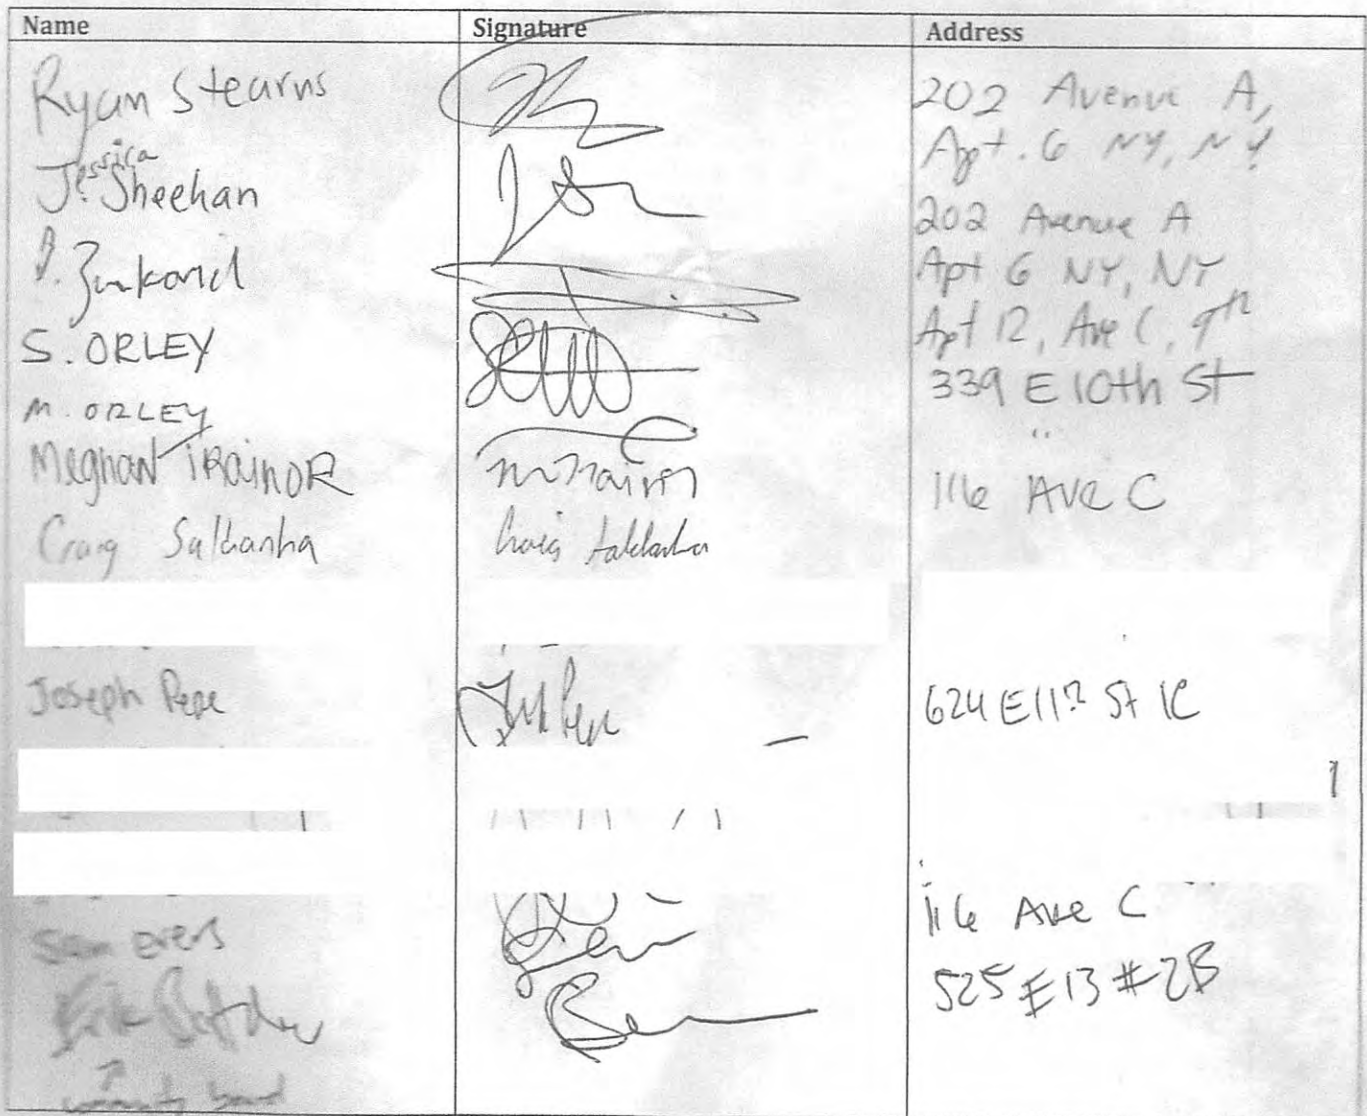 Name Signature Address
Ryan Stearns 202 Avenue A,
Apt. 6 NY, NY
Jessica
J. Sheehan 202 Avenue A
Apt 6 NY, NY
Apt 12, Ave C, 9th
S. ORLEY 339 E 10th St
M. ORLEY "
Meghan TRAINOR 116 AVE C
Craig Saldanha Craig Saldanha
Joseph Pepe 624 E 11th St 1C
Sam evers 116 Ave C
Erik 525 E 13 #2B
community board